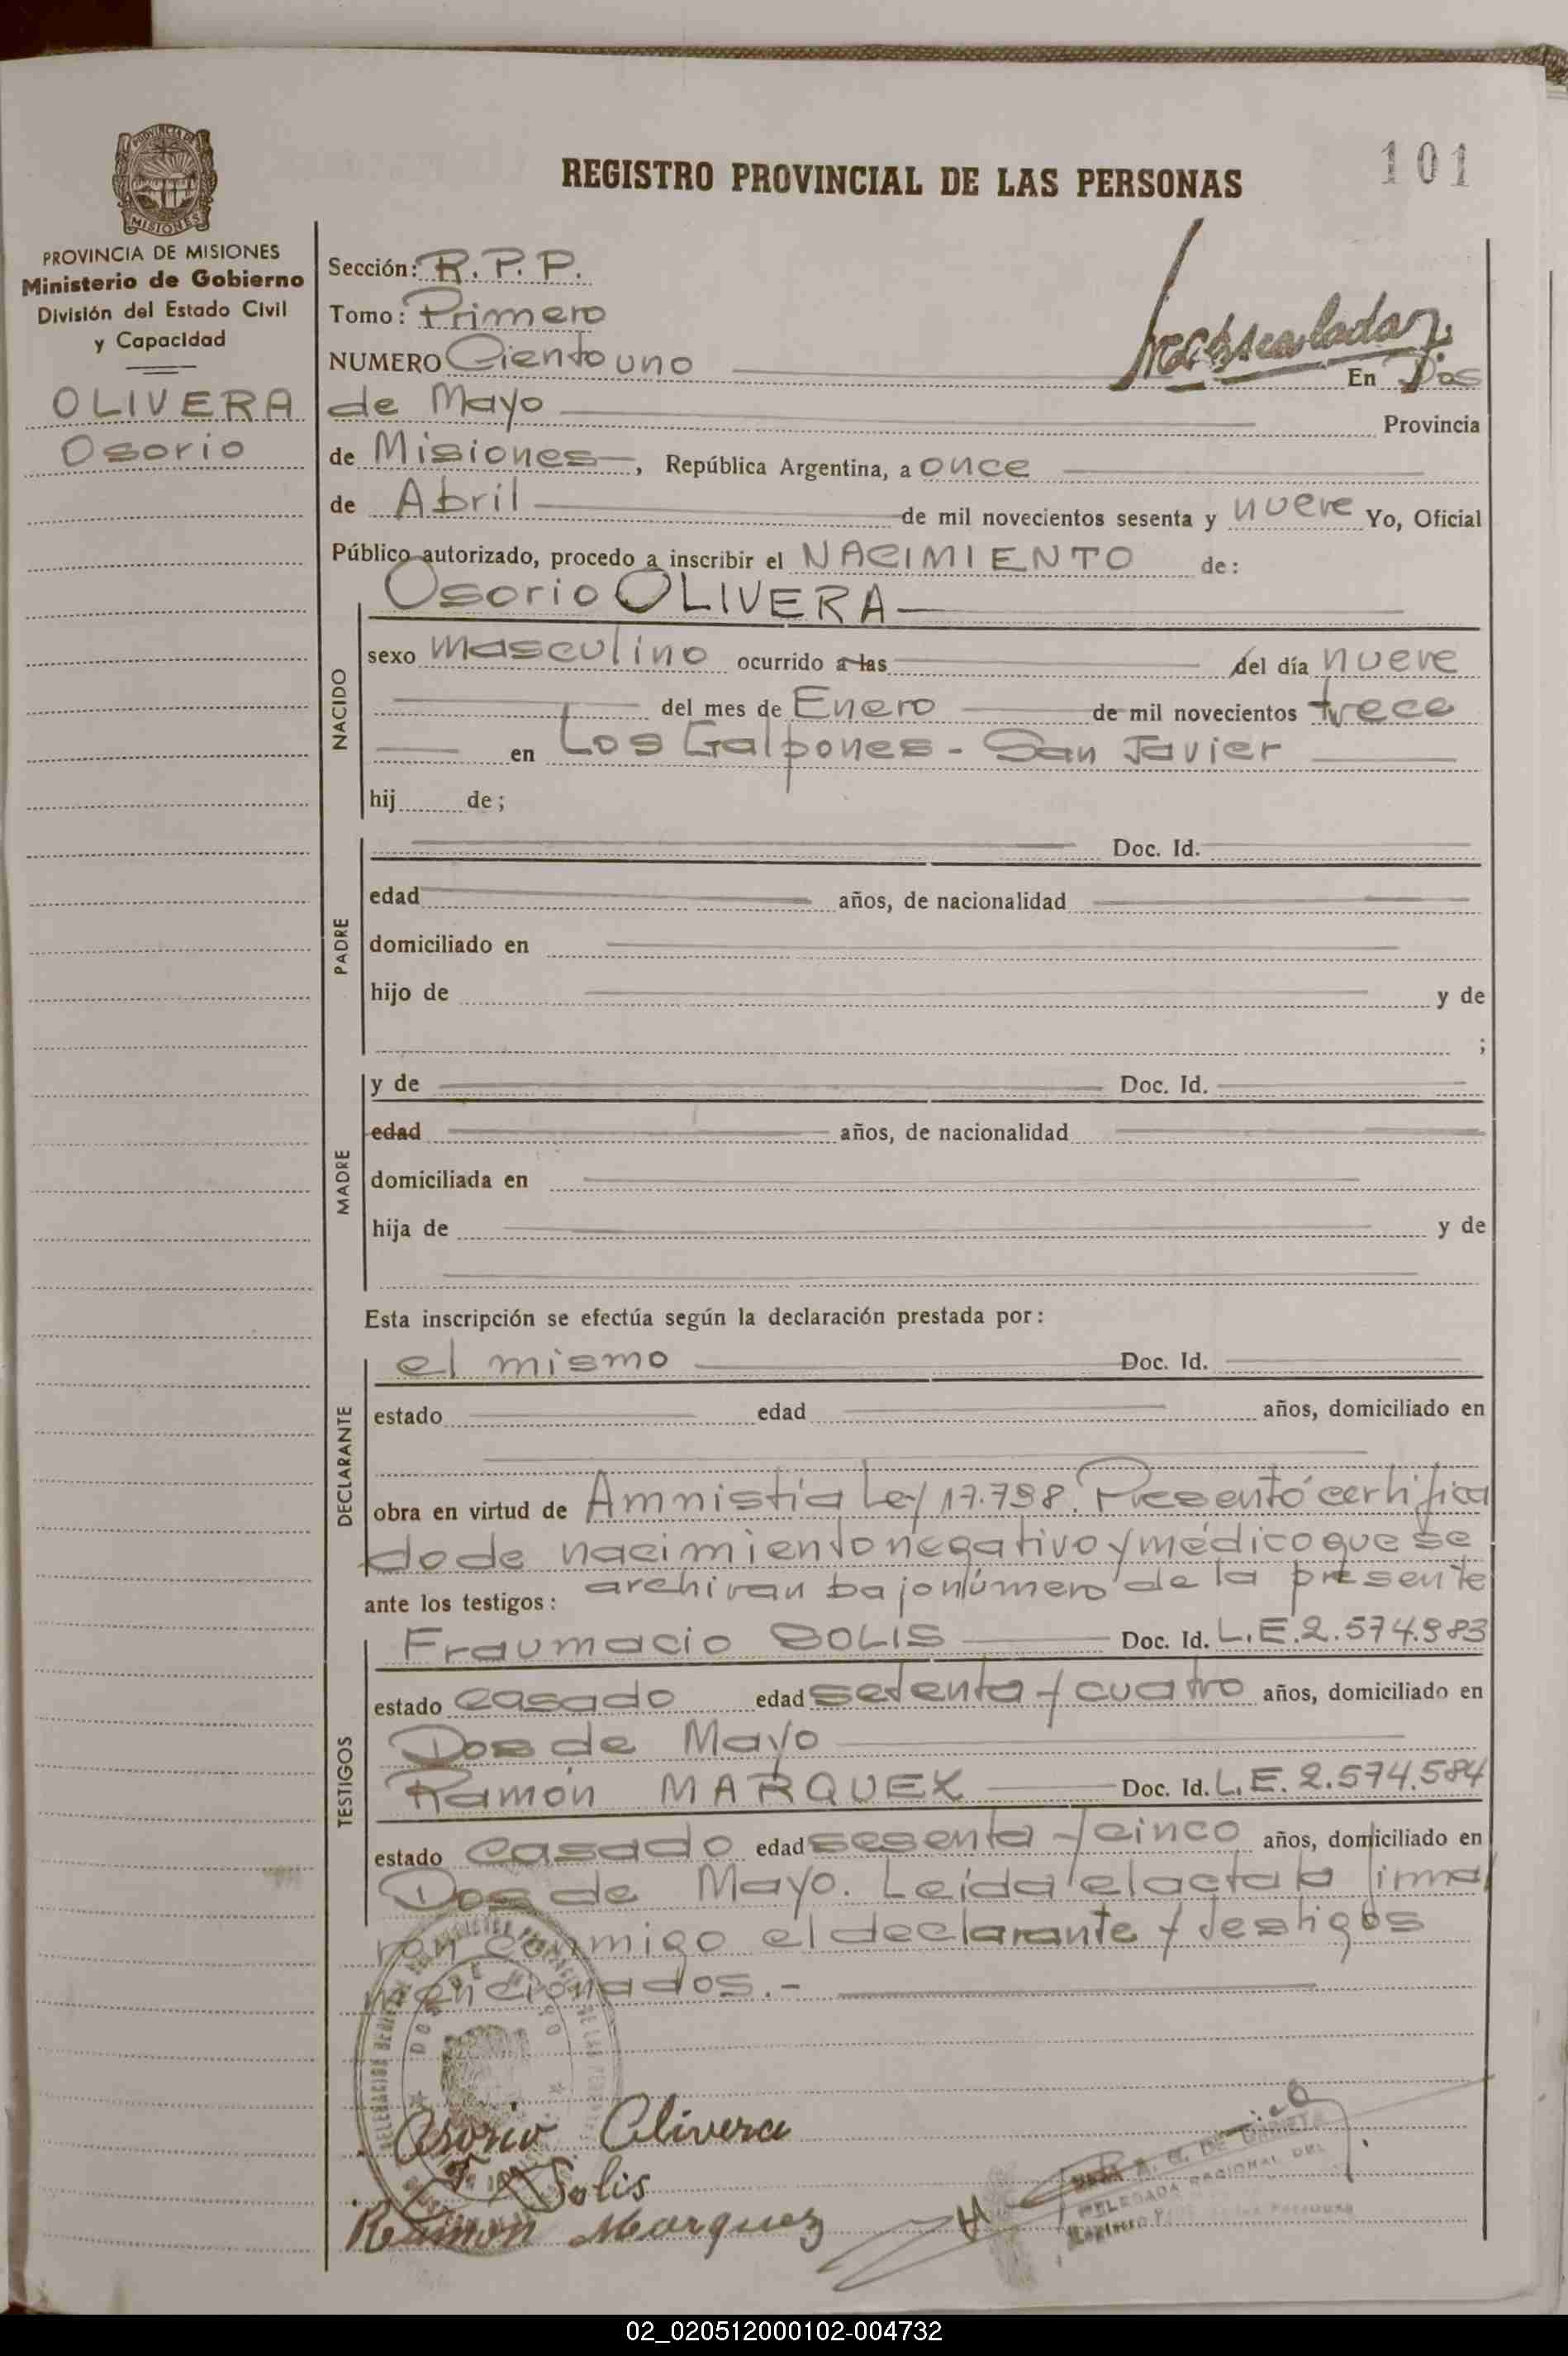 101
REGISTRO PROVINCIAL DE LAS PERSONAS
PROVINCIA DE MISIONES
Ministerio de Gobierno
División del Estado Civil
y Capacidad
OLIVERA
Osorio
Sección: R. P. P.
Tomo: Primero
NUMERO Ciento uno En Dos
de Mayo Provincia
de Misiones, República Argentina, a once
de Abril de mil novecientos sesenta y nueve Yo, Oficial
Público autorizado, procedo a inscribir el NACIMIENTO de:
Osorio OLIVERA
NACIDO
sexo masculino ocurrido a las del día nueve
del mes de Enero de mil novecientos trece
en Los Galpones - San Javier
hij de;
PADRE
Doc. Id.
edad años, de nacionalidad
domiciliado en
hijo de y de
;
MADRE
y de Doc. Id.
edad años, de nacionalidad
domiciliada en
hija de y de
Esta inscripción se efectúa según la declaración prestada por:
DECLARANTE
el mismo Doc. Id.
estado edad años, domiciliado en
obra en virtud de Amnistía Ley 17.798. Presentó certifica
do de nacimiento negativo y médico que se
archivan bajo número de la presente
ante los testigos:
TESTIGOS
Fraumacio SOLIS Doc. Id. L.E. 2.574.983
estado casado edad setenta y cuatro años, domiciliado en
Dos de Mayo
Ramón MARQUEZ Doc. Id. L.E. 2.574.584
estado casado edad sesenta y cinco años, domiciliado en
Dos de Mayo. Leída el acta la firma
ron conmigo el declarante y testigos
mencionados.-
Osorio Olivera
F. Solis
Ramon Marquez
DELEGADA REGIONAL DEL
02_020512000102-004732